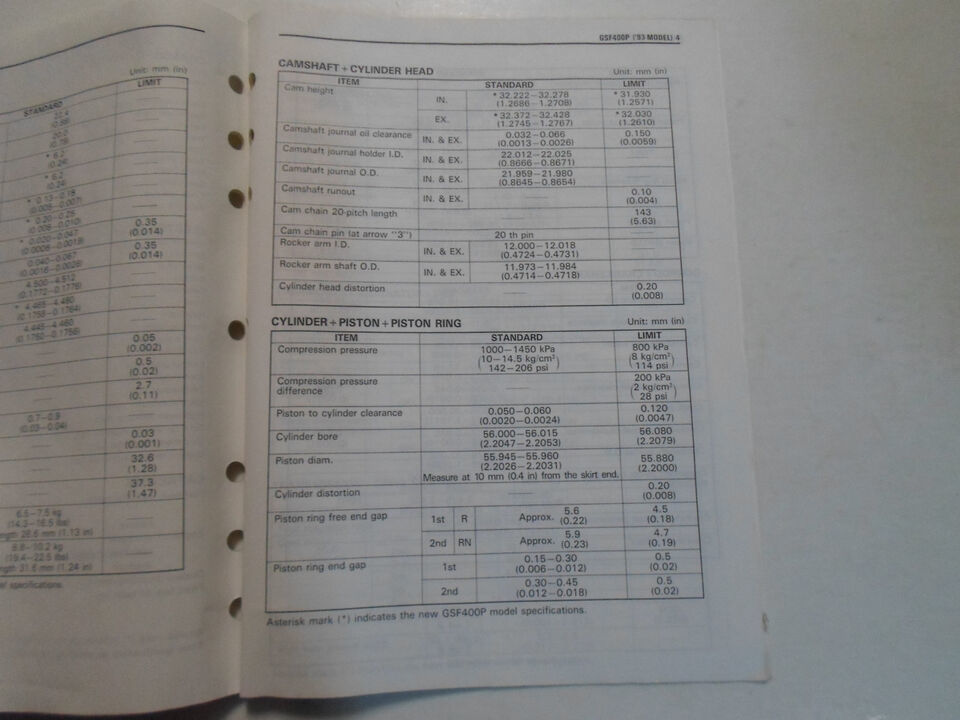 Unit: mm (in)
STANDARD LIMIT
22.4
(0.88)
20.0
(0.79)
* 6.2
(0.24)
* 6.2
(0.24)
(0.005–0.007)
* 0.20–0.25
(0.008–0.010)
0.35
(0.014)
* 0.020–0.047
(0.0008–0.0018)
0.35
(0.014)
0.040–0.067
(0.0016–0.0026)
4.500–4.512
(0.1772–0.1776)
* 4.465–4.480
(0.1758–0.1764)
4.445–4.460
(0.1750–0.1756)
0.05
(0.002)
0.5
(0.02)
2.7
(0.11)
0.7–0.9
(0.03–0.04)
0.03
(0.001)
32.6
(1.28)
37.3
(1.47)
6.5–7.5 kg
(14.3–16.5 lbs)
ngth 28.6 mm (1.13 in)
8.8–10.2 kg
(19.4–22.5 lbs)
ngth 31.6 mm (1.24 in)
el specifications.
GSF400P ('93-MODEL) 4
CAMSHAFT + CYLINDER HEAD Unit: mm (in)
ITEM STANDARD LIMIT
Cam height IN. * 32.222–32.278 * 31.930
(1.2686–1.2708) (1.2571)
EX. * 32.372–32.428 * 32.030
(1.2745–1.2767) (1.2610)
Camshaft journal oil clearance IN. & EX. 0.032–0.066 0.150
(0.0013–0.0026) (0.0059)
Camshaft journal holder I.D. IN. & EX. 22.012–22.025
(0.8666–0.8671)
Camshaft journal O.D. IN. & EX. 21.959–21.980
(0.8645–0.8654)
Camshaft runout IN. & EX. 0.10
(0.004)
Cam chain 20-pitch length 143
(5.63)
Cam chain pin (at arrow "3") 20 th pin
Rocker arm I.D. IN. & EX. 12.000–12.018
(0.4724–0.4731)
Rocker arm shaft O.D. IN. & EX. 11.973–11.984
(0.4714–0.4718)
Cylinder head distortion 0.20
(0.008)
CYLINDER + PISTON + PISTON RING Unit: mm (in)
ITEM STANDARD LIMIT
Compression pressure 1000–1450 kPa 800 kPa
(10–14.5 kg/cm² 8 kg/cm²)
142–206 psi 114 psi
Compression pressure 200 kPa
difference (2 kg/cm²)
28 psi
Piston to cylinder clearance 0.050–0.060 0.120
(0.0020–0.0024) (0.0047)
Cylinder bore 56.000–56.015 56.080
(2.2047–2.2053) (2.2079)
Piston diam. 55.945–55.960 55.880
(2.2026–2.2031) (2.2000)
Measure at 10 mm (0.4 in) from the skirt end.
Cylinder distortion 0.20
(0.008)
Piston ring free end gap 1st R Approx. 5.6 4.5
(0.22) (0.18)
2nd RN Approx. 5.9 4.7
(0.23) (0.19)
Piston ring end gap 1st 0.15–0.30 0.5
(0.006–0.012) (0.02)
2nd 0.30–0.45 0.5
(0.012–0.018) (0.02)
Asterisk mark (*) indicates the new GSF400P model specifications.